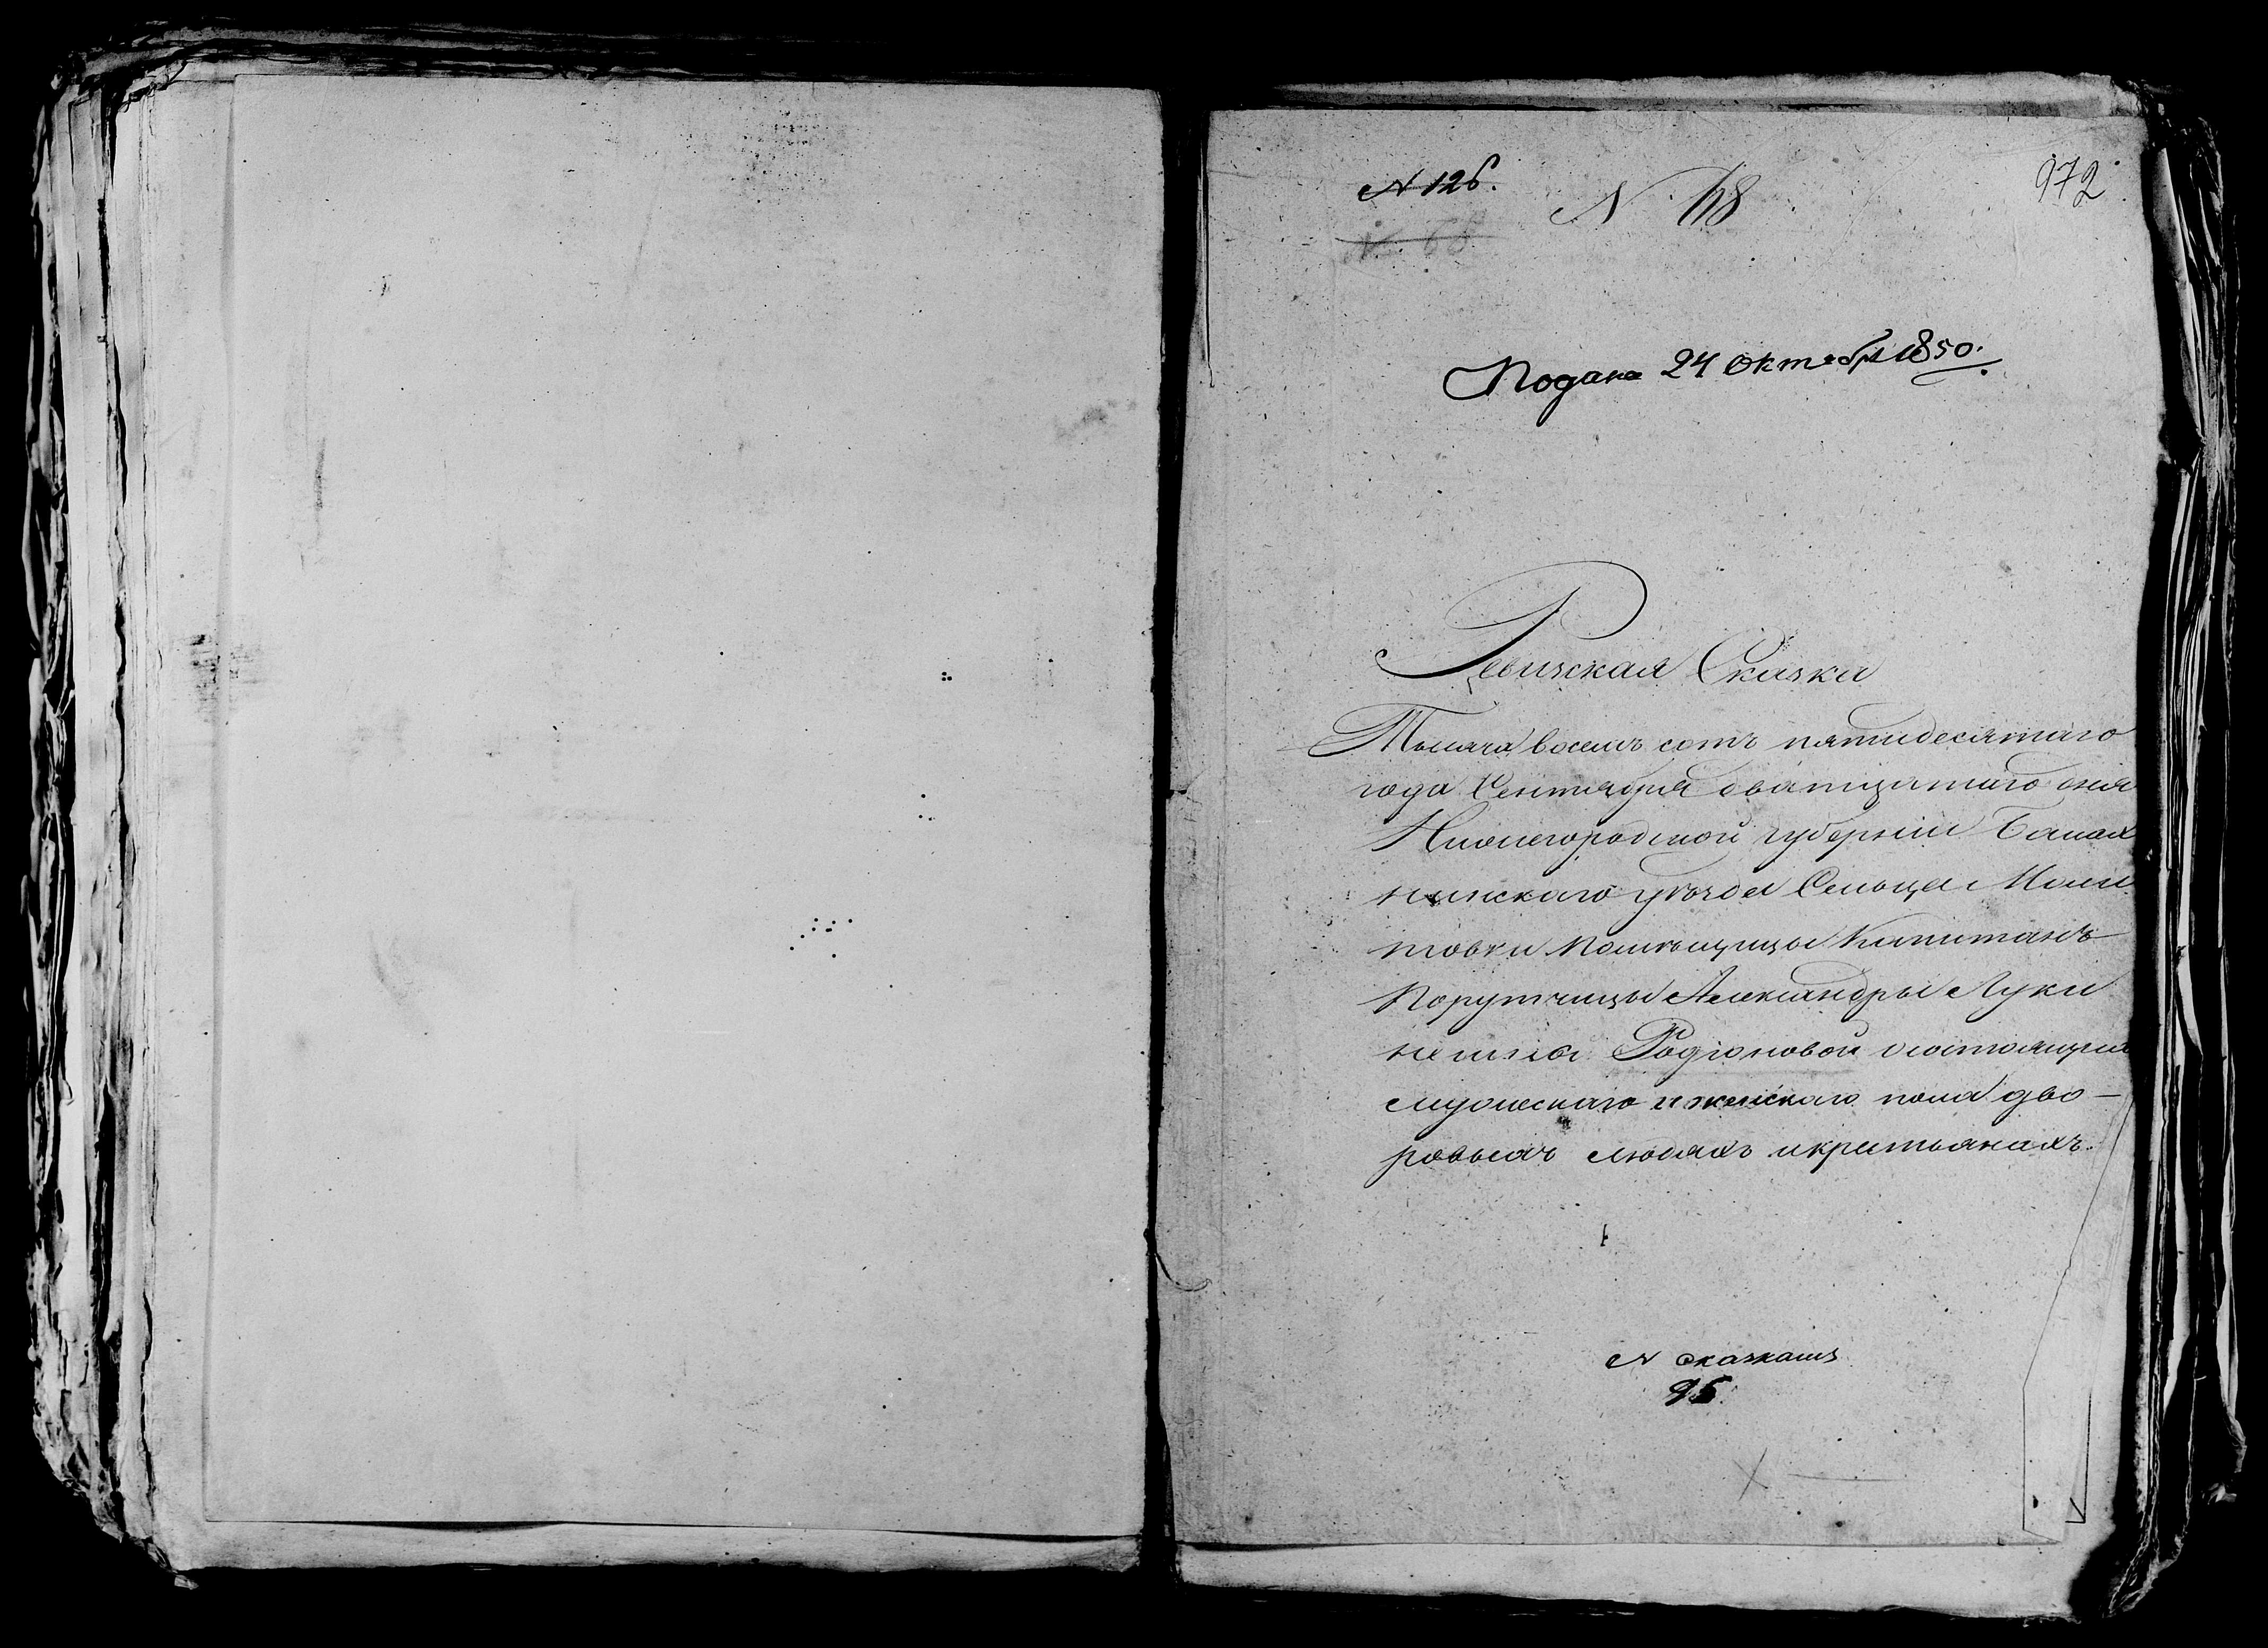 972
N 126.
N 68
N. 68
Подана 24 Октября 1850.
Ревизская Сказка
Тысяча восемь сотъ пятидесятаго
года Сентября дватцатаго дня
Нижегородской губерніи Балах
нинскаго уѣзда Сельца Моли
товки помѣщицы Капитанъ
Порутчицы Александры Луки
нешны Родіоновой о состоящихъ
мужескаго и женскаго пола дво-
ровыхъ людяхъ и крестьянахъ.
N сказкамъ
95.